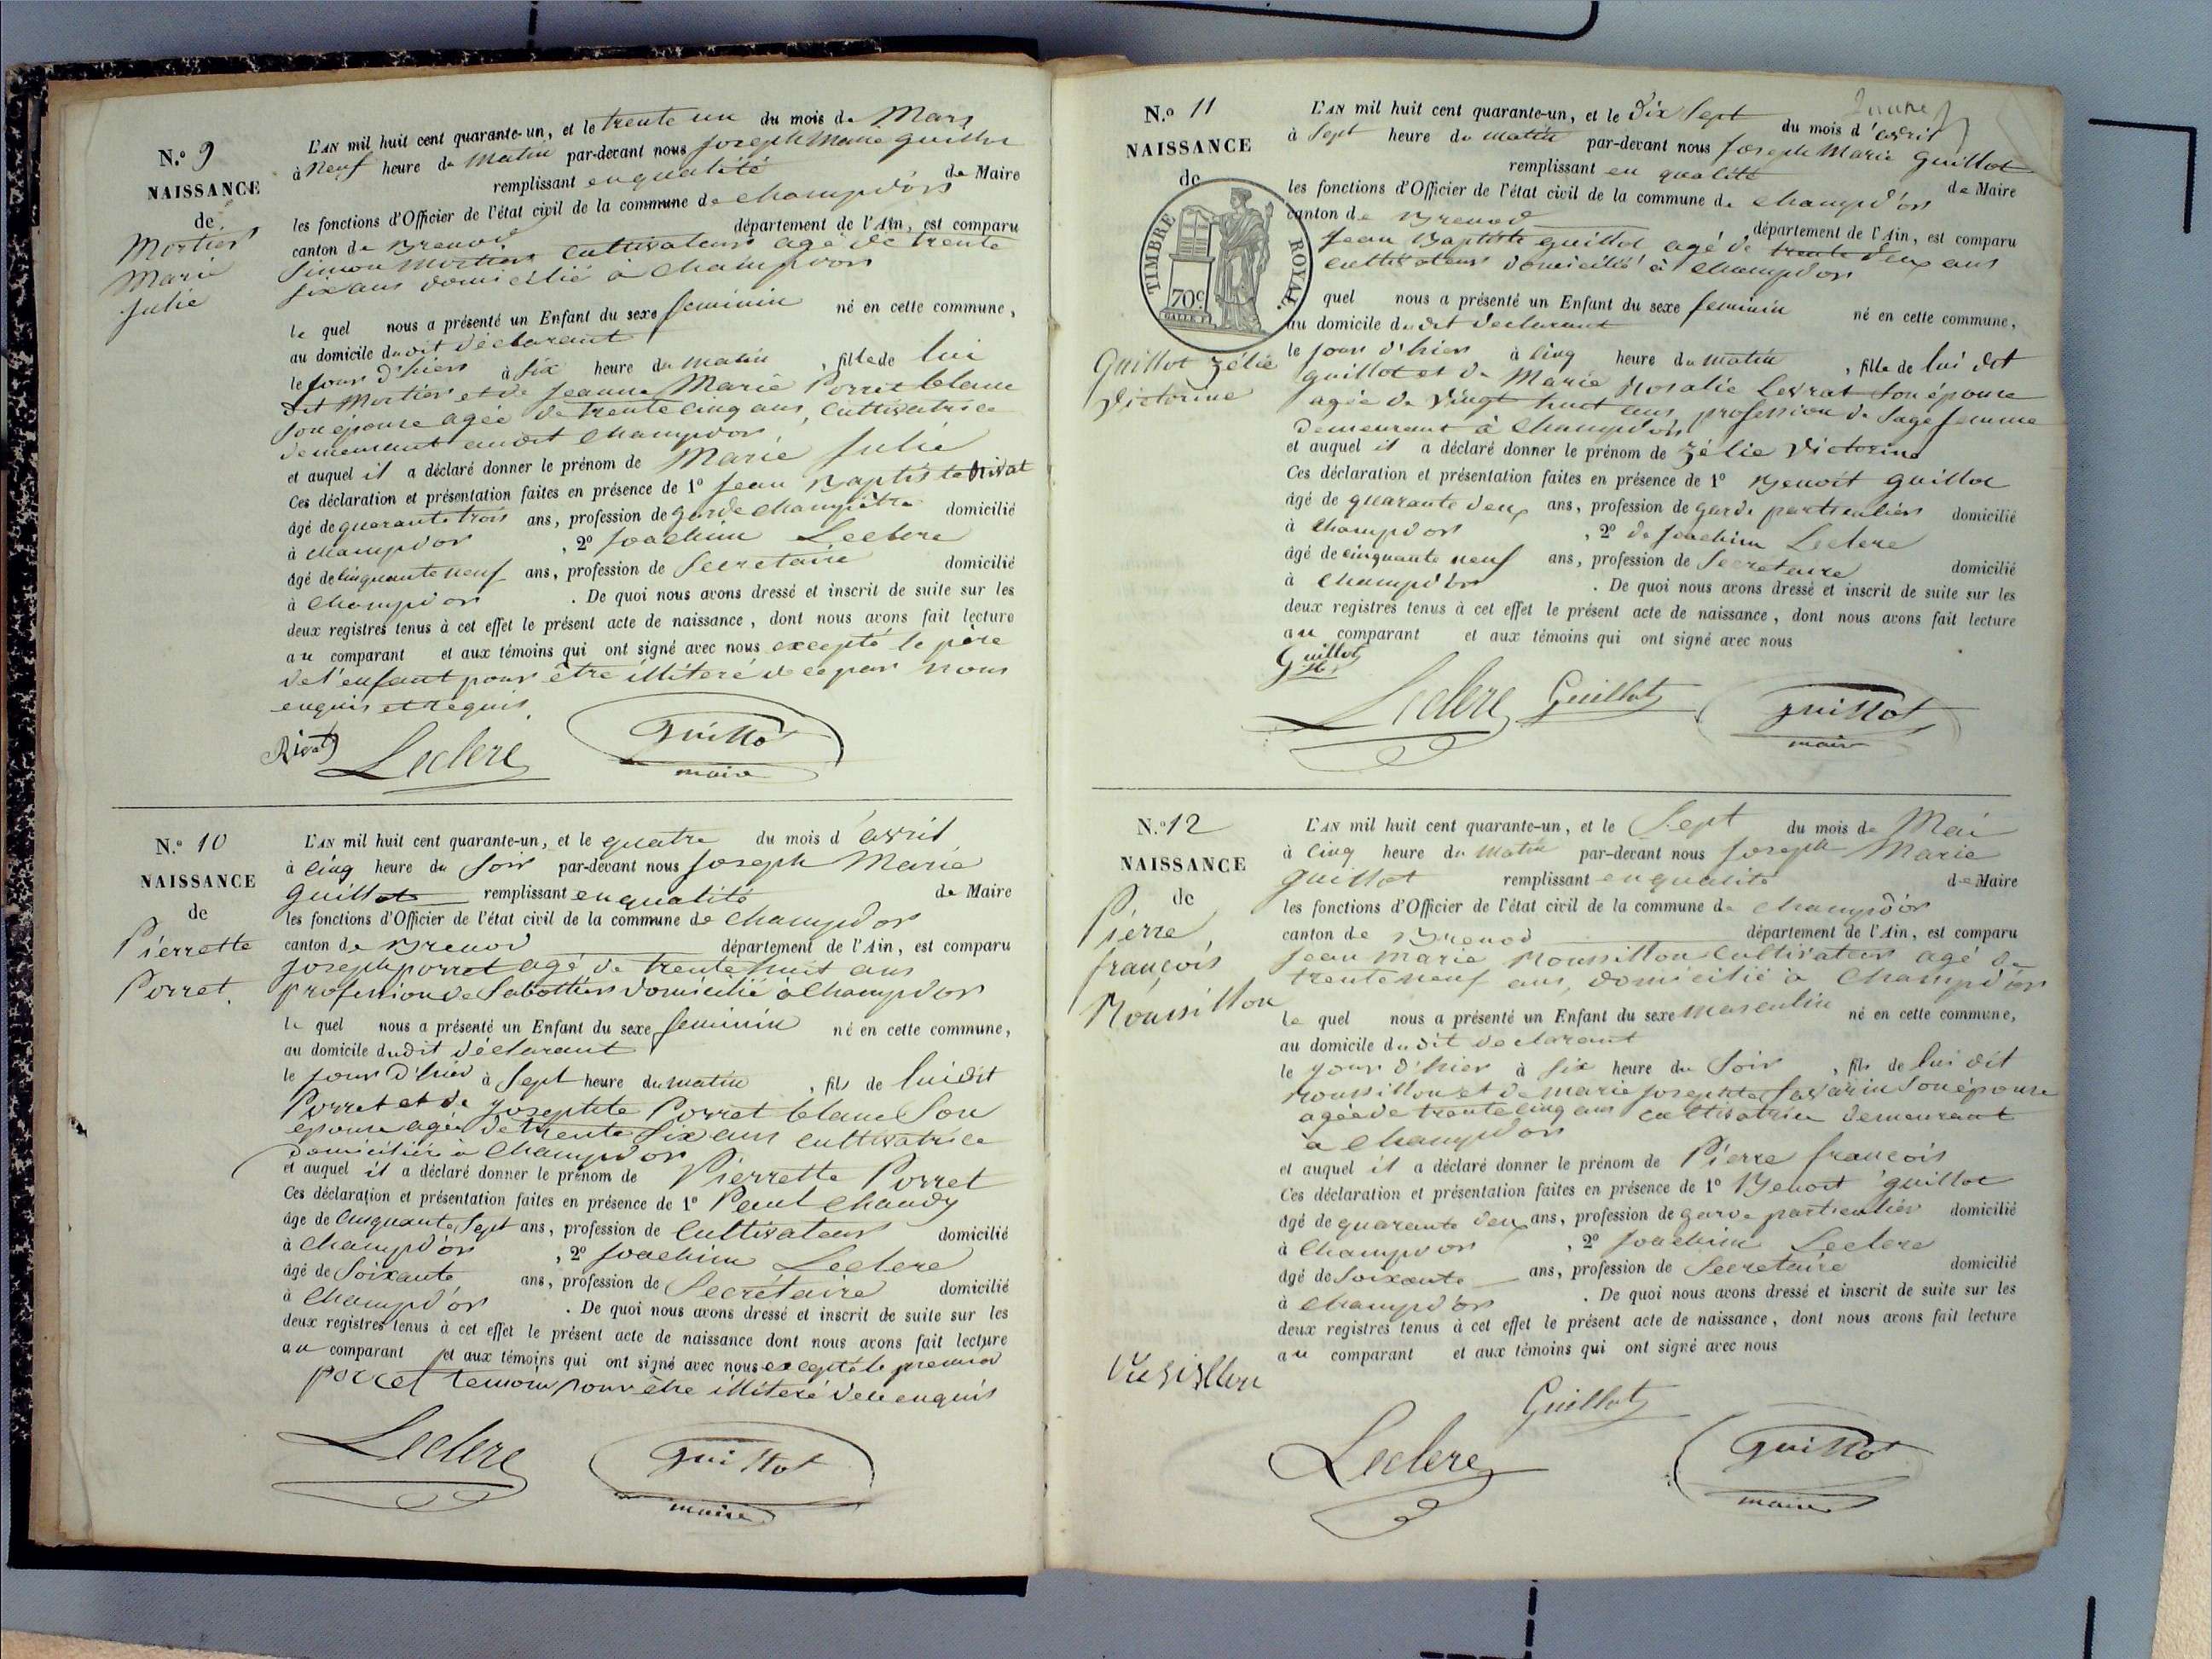 N.º 9
NAISSANCE
de
Mortier
Marie
Julie
L'AN mil huit cent quarante-un, et le trente un du mois de Mars
à Neuf heure du Matin par-devant nous Joseph Marie Guillot
remplissant en qualité de Maire
les fonctions d'Officier de l'état civil de la commune de Champdor
canton de Brenod département de l'Ain, est comparu
Simon Mortier Cultivateur agé de trente
six ans domicilié à Champdor
le quel nous a présenté un Enfant du sexe feminin né en cette commune,
au domicile dudit déclarant
le jour d'hier à six heure du matin, fille de lui
dit Mortier et de Jeanne Marie Porret blanc
son épouse agée de trente cinq ans, Cultivatrice
demeurant audit Champdor
et auquel il a déclaré donner le prénom de Marie Julie
Ces déclaration et présentation faites en présence de 1º Jean Baptiste Rivat
âgé de quarante trois ans, profession de garde Champêtre domicilié
à Champdor, 2º Joachim Leclere
âgé de cinquante neuf ans, profession de Secretaire domicilié
à Champdor. De quoi nous avons dressé et inscrit de suite sur les
deux registres tenus à cet effet le présent acte de naissance, dont nous avons fait lecture
au comparant et aux témoins qui ont signé avec nous excepté le père
de l'enfant pour être illiteré de ce par nous
enquis et requis
Rivat Leclere Guillot
maire
N.º 10
NAISSANCE
de
Pierrette
Porret
L'AN mil huit cent quarante-un, et le quatre du mois d'avril
à cinq heure du soir par-devant nous Joseph Marie
Guillot remplissant en qualité de Maire
les fonctions d'Officier de l'état civil de la commune de Champdor
canton de Brenod département de l'Ain, est comparu
Joseph porret agé de trente huit ans
profession de Sabottier domicilié à Champdor
le quel nous a présenté un Enfant du sexe feminin né en cette commune,
au domicile dudit déclarant
le jour d'hier à sept heure du matin, fils de lui dit
Porret et de Josephte Porret blanc son
épouse agée de trente six ans cultivatrice
domiciliée à Champdor
et auquel il a déclaré donner le prénom de Pierrette Porret
Ces déclaration et présentation faites en présence de 1º Paul Chavdy
âge de cinquante sept ans, profession de Cultivateur domicilié
à Champdor, 2º Joachim Leclere
âgé de soixante ans, profession de Secrétaire domicilié
à Champd'or. De quoi nous avons dressé et inscrit de suite sur les
deux registres tenus à cet effet le présent acte de naissance dont nous avons fait lecture
au comparant et aux témoins qui ont signé avec nous excepté le premier
porret temoin pour être illiteré de ce enquis
Leclere Guillot
maire
N.º 11
NAISSANCE
de
TIMBRE ROYAL.
70c
Guillot Zélie
Victorine
L'AN mil huit cent quarante-un, et le Dix Sept du mois d'avril
à Sept heure du matin par-devant nous Joseph Marie Guillot
remplissant en qualité de Maire
les fonctions d'Officier de l'état civil de la commune de Champd'or
canton de Brenod département de l'Ain, est comparu
Jean Baptiste guillot agé de trente deux ans
cultivateur domicilié à Champdor
quel nous a présenté un Enfant du sexe feminin né en cette commune,
au domicile dudit declarant
le jour d'hier à cinq heure du matin, fille de lui dit
guillot et de Marie Rosalie Levrat son épouse
agée de vingt huit ans, profession de Sage femme
demeurant à Champdor
et auquel il a déclaré donner le prénom de Zélie Victorine
Ces déclaration et présentation faites en présence de 1º Benoit guillot
âgé de quarante deux ans, profession de garde particulier domicilié
à Champdor, 2º de Joachim Leclere
âgé de cinquante neuf ans, profession de Secretaire domicilié
à Champd'or. De quoi nous avons dressé et inscrit de suite sur les
deux registres tenus à cet effet le présent acte de naissance, dont nous avons fait lecture
au comparant et aux témoins qui ont signé avec nous
Guillot
Leclere Guillot Guillot
maire
N.º 12
NAISSANCE
de
Pierre
françois
Roussillon
L'AN mil huit cent quarante-un, et le Sept du mois de Mai
à cinq heure du matin par-devant nous Joseph Marie
Guillot remplissant en qualité de Maire
les fonctions d'Officier de l'état civil de la commune de Champd'or
canton de Brenod département de l'Ain, est comparu
Jean Marie Roussillon Cultivateur agé de
trente neuf ans, domicilié à Champd'or
le quel nous a présenté un Enfant du sexe masculin né en cette commune,
au domicile dudit declarant
le jour d'hier à six heure du Soir, fils de lui dit
roussillon et de marie Josephte Savarin son épouse
agée de trente cinq ans cultivatrice demeurant
à Champdor
et auquel il a déclaré donner le prénom de Pierre françois
Ces déclaration et présentation faites en présence de 1º Benoit guillot
âgé de quarante deux ans, profession de garde particulier domicilié
à Champdor, 2º Joachim Leclere
âgé de soixante ans, profession de Secretaire domicilié
à Champd'or. De quoi nous avons dressé et inscrit de suite sur les
deux registres tenus à cet effet le présent acte de naissance, dont nous avons fait lecture
au comparant et aux témoins qui ont signé avec nous
Guillot
Leclere Guillot
maire